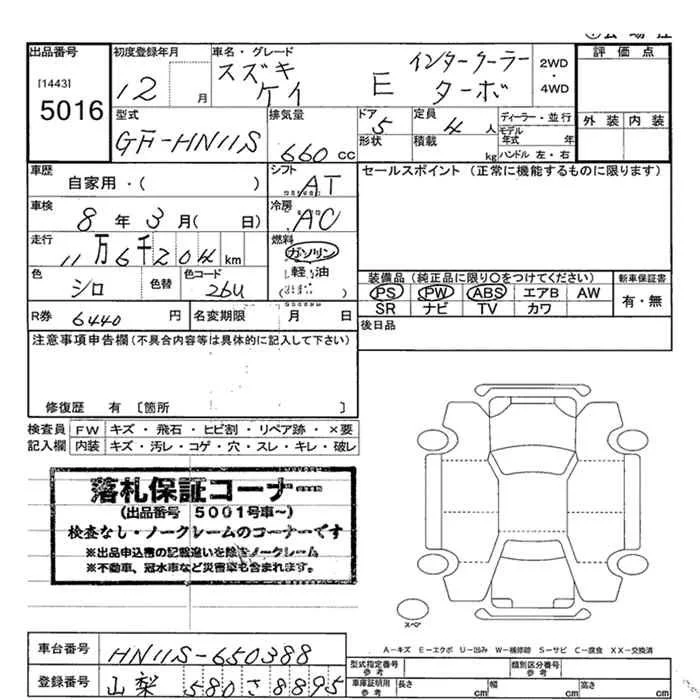 出品番号
[1443]
5016
初度登録年月
12 月
車名・グレード
スズキ
ケイ E インタークーラー
ターボ
2WD
・
4WD
評価点
外装 内装
型式
GF-HN11S
排気量
660 CC
ドア
5
形状
定員
4 人
積載
kg
ディーラー・並行
モデル
年式 年
ハンドル 左・右
車歴
自家用・( )
シフト
AT
セールスポイント (正常に機能するものに限ります)
車検
8 年 3 月( 日)
冷房
AC
走行
11万6千204 km
燃料
ガソリン
軽油
( )
色
シロ
色替
色コード
26U
R券 6440 円
名変期限 月 日
装備品 (純正品に限り○をつけてください)
PS PW ABS エアB AW
SR ナビ TV カワ
新車保証書
有・無
後日品
注意事項申告欄(不具合内容等は具体的に記入して下さい)
修復歴 有 〔箇所 〕
検査員 FW キズ・飛石・ヒビ割・リペア跡・×要
記入欄 内装 キズ・汚レ・コゲ・穴・スレ・キレ・破レ
落札保証コーナー
(出品番号 5001号車~)
検査なし・ノークレームのコーナーです
※出品申込書の記載違いを除きノークレーム
※不動車、冠水車など災害車も含まれます。
スペア
A-キズ E-エクボ U-凹み W-補修跡 S-サビ C-腐食 XX-交換済
車台番号 HN11S-650388
登録番号 山梨 580 さ 8895
型式指定番号
参考
類別区分番号
参考
車庫証明用
参考
長さ cm
幅 cm
高さ cm